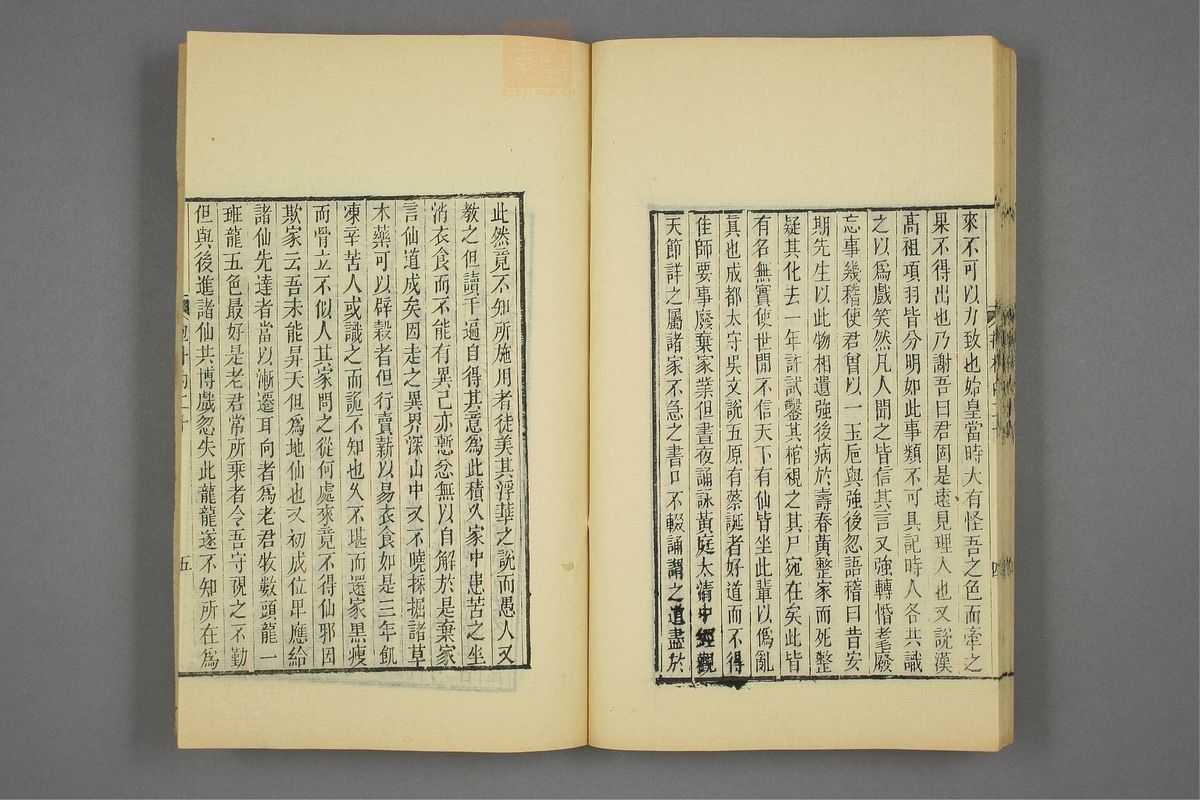 來不可以力致也始皇當時大有怪吾之色而牽之
果不得出也乃謝吾曰君固是遠見理人也又說漢
高祖項羽皆分明如此事類不可具記時人各共識
之以爲戲笑然凡人聞之皆信其言又強轉惛耄廢
忘事幾稽使君曾以一玉巵與強後忽語稽曰昔安
期先生以此物相遺強後病於壽春黃整家而死整
疑其化去一年許試鑿其棺視之其尸宛在矣此皆
有名無實使世閒不信天下有仙皆坐此輩以僞亂
眞也成都太守吳文說五原有蔡誕者好道而不得
佳師要事廢棄家業但晝夜誦詠黃庭太清中經觀
天節詳之屬諸家不急之書口不輟誦謂之道盡於
四
此然竟不知所施用者徒美其浮華之說而愚人又
敎之但讀千遍自得其意爲此積久家中患苦之坐
消衣食而不能有異己亦慙忿無以自解於是棄家
言仙道成矣因走之異界深山中又不曉採掘諸草
木藥可以辟穀者但行賣薪以易衣食如是三年飢
凍辛苦人或識之而詭不知也久不堪而還家黑瘦
而骨立不似人其家問之從何處來竟不得仙邪因
欺家云吾未能昇天但爲地仙也又初成位卑應給
諸仙先達者當以漸遷耳向者爲老君牧數頭龍一
班龍五色最好是老君常所乘者令吾守視之不勤
但與後進諸仙共博戲忽失此龍龍遂不知所在爲
五
zysj.com.cn